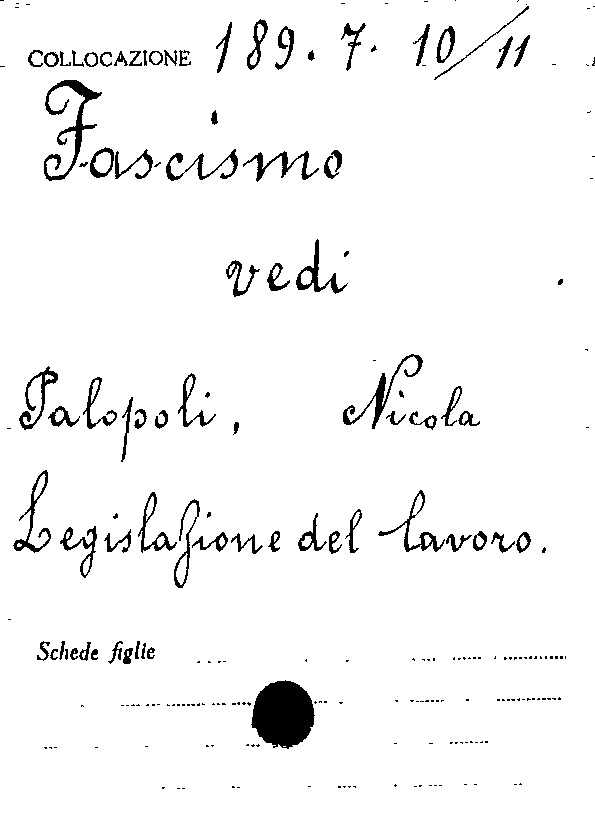 COLLOCAZIONE 189.7.10/11
Fascismo
vedi
Palopoli, Nicola
Legislazione del lavoro.
Schede figlie